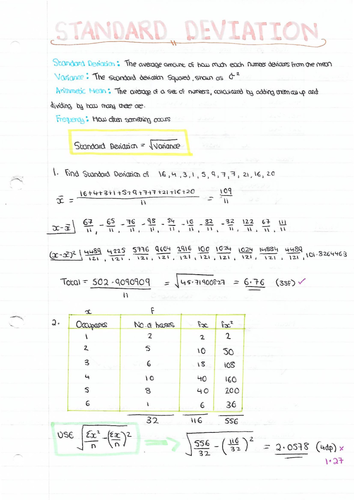 STANDARD DEVIATION
Standard Deviation: The average amount of how much each number deviates from the mean
Variance: The standard deviation squared, shown as σ²
Arithmetic Mean: The average of a set of numbers, calculated by adding them as up and
dividing by how many there are.
Frequency: How often something occurs
Standard Deviation = √Variance
1. Find Standard Deviation of 16, 4, 3, 1, 5, 9, 7, 7, 21, 16, 20
x̄ = 16+4+3+1+5+9+7+7+21+16+20 / 11 = 109 / 11
x-x̄ | 67/11, -65/11, -76/11, -98/11, -54/11, -10/11, -32/11, -32/11, 122/11, 67/11, 111/11
(x-x̄)² | 4489/121, 4225/121, 5776/121, 9604/121, 2916/121, 100/121, 1024/121, 1024/121, 14884/121, 4489/121,
Total = 502.9090909 / 11 = √45.71900827 = 6.76 (3SF) ✓
x F
2. Occupants No. of homes Fx Fx²
1 2 2 2
2 5 10 20
3 6 18
4 10 40 160
5 8 40 200
6 1 6 36
32 116 556
USE √Σx²/n - (Σx/n)² ⇒ √556/32 - (116/32)² = 2.0578 (4dp) x
1.27